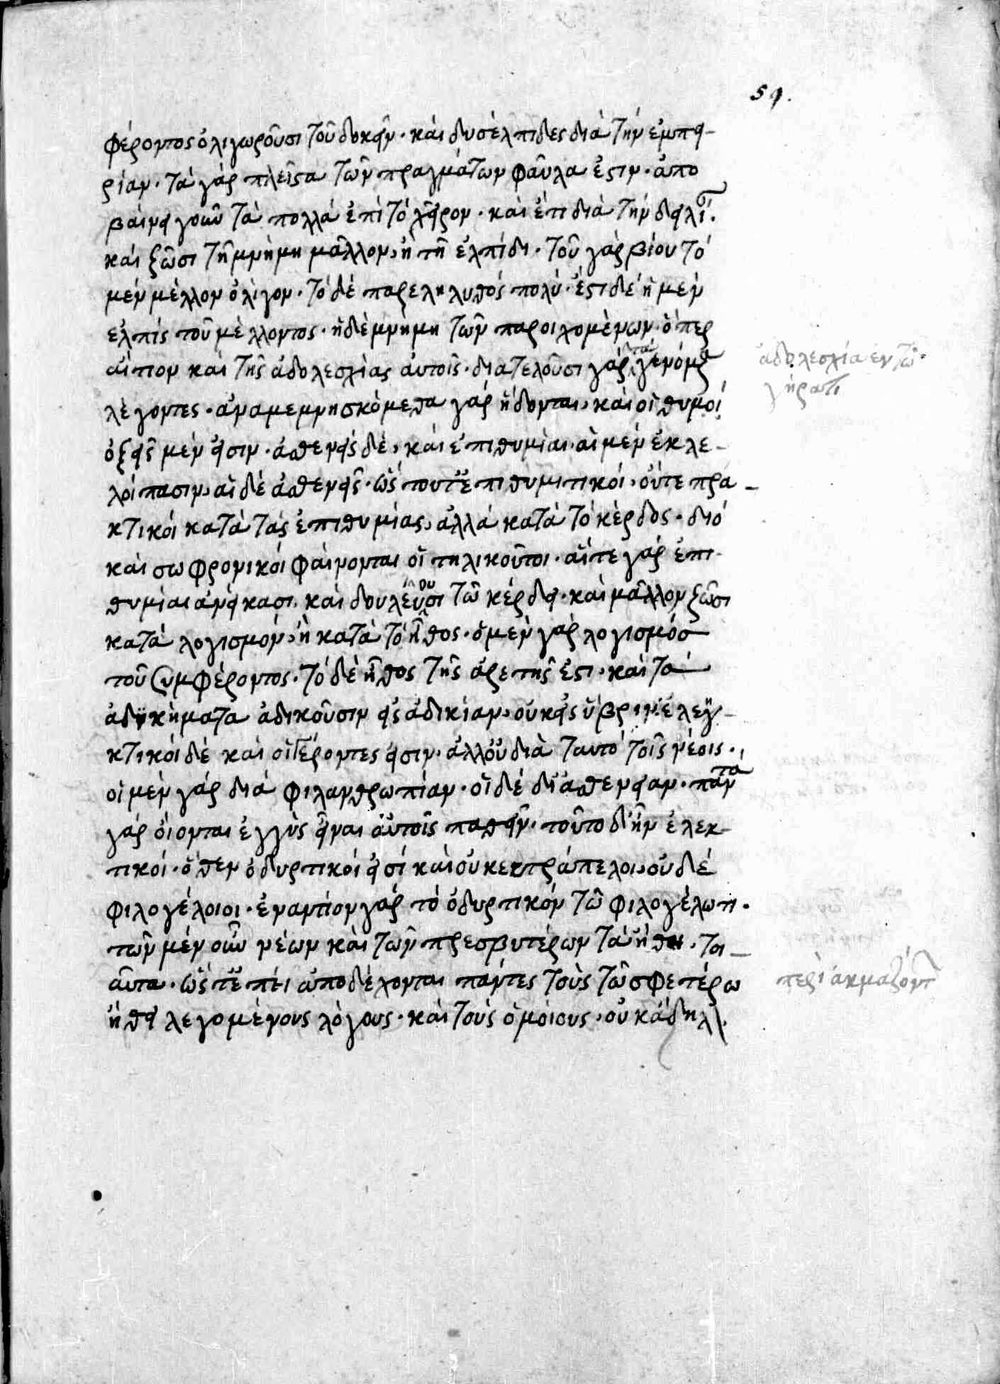 59.
φέροντος ὀλιγωροῦσι τοῦ δοκεῖν· καὶ δυσέλπιδες διὰ τὴν ἐμπει-
ρίαν· τὰ γὰρ πλεῖστα τῶν πραγμάτων φαῦλα ἐστιν· ἀπο
βαίνει γοῦν τὰ πολλὰ ἐπὶ τὸ χεῖρον· καὶ ἔτι διὰ τὴν δειλί
καὶ ζῶσι τῆ μνήμη μᾶλλον, ἢ τῆ ἐλπίδι· τοῦ γὰρ βίου τὸ
μὲν μέλλον ὀλίγον· τὸ δὲ παρεληλυθὸς πολύ· ἔστι δὲ ἡ μὲν
ἐλπὶς τοῦ μέλλοντος· ἡ δὲ μνήμη τῶν παροιχομένων· ὅπερ
αἴτιον καὶ τῆς ἀδολεσχίας αὐτοῖς· διατελοῦσι γὰρ τὰ γενόμενα
λέγοντες· ἀναμεμνησκόμενα γὰρ ἥδονται, καὶ οἱ θυμοὶ
ὀξεῖς μὲν εἰσιν· ἀσθενεῖς δέ, καὶ ἐπιθυμίαι, αἱ μὲν ἐκλε-
λοίπασιν, αἱ δὲ ἀσθενεῖς· ὥστ' οὔτ' ἐπιθυμιτικοὶ, οὔτε πρα-
κτικοὶ κατὰ τὰς ἐπιθυμίας, ἀλλὰ κατὰ τὸ κέρδος· διὸ
καὶ σωφρονικοὶ φαίνονται οἱ τηλικοῦτοι· αἵ τε γὰρ ἐπι-
θυμίαι ἀνείκασι, καὶ δουλεύουσι τῶ κέρδει· καὶ μᾶλλον ζῶσι
κατὰ λογισμὸν, ἢ κατὰ τὸ ἦθος· ὁ μὲν γὰρ λογισμὸς
τοῦ συμφέροντος· τὸ δὲ ἦθος τῆς ἀρετῆς ἐστι· καὶ τὰ
ἀδικήματα ἀδικοῦσιν εἰς ἀδικίαν, οὐκ εἰς ὕβριν· ἐλεη-
κτικοὶ δὲ καὶ οἱ γέροντες εἰσιν· ἀλλ' οὐ διὰ ταυτὸ τοῖς νέοις·
οἱ μὲν γὰρ διὰ φιλανθρωπίαν· οἱ δὲ δι' ἀσθένειαν· πάντα
γὰρ οἴονται ἐγγὺς εἶναι αὐτοῖς παθεῖν· τοῦτο δ' ἦν ἐλεκ-
τικοί· ὅθεν ὀδυρτικοὶ εἰσὶ καὶ οὐκ εὐτράπελοι, οὐδὲ
φιλογέλοιοι· ἐναντίον γὰρ τὸ ὀδυρτικὸν τῶ φιλογέλωτι·
τῶν μὲν οὖν νέων καὶ τῶν πρεσβυτέρων τὰ ἤθη τοι-
αῦτα· ὥστ' ἐπεὶ ἀποδέχονται πάντες τοὺς τῶ σφετέρω
ἤθει λεγομένους λόγους· καὶ τοὺς ὁμοίους, οὐκ ἄδηλ
ἀδολεσχία ἐν τῶ
γήρατι
περὶ ἀκμαζόντ